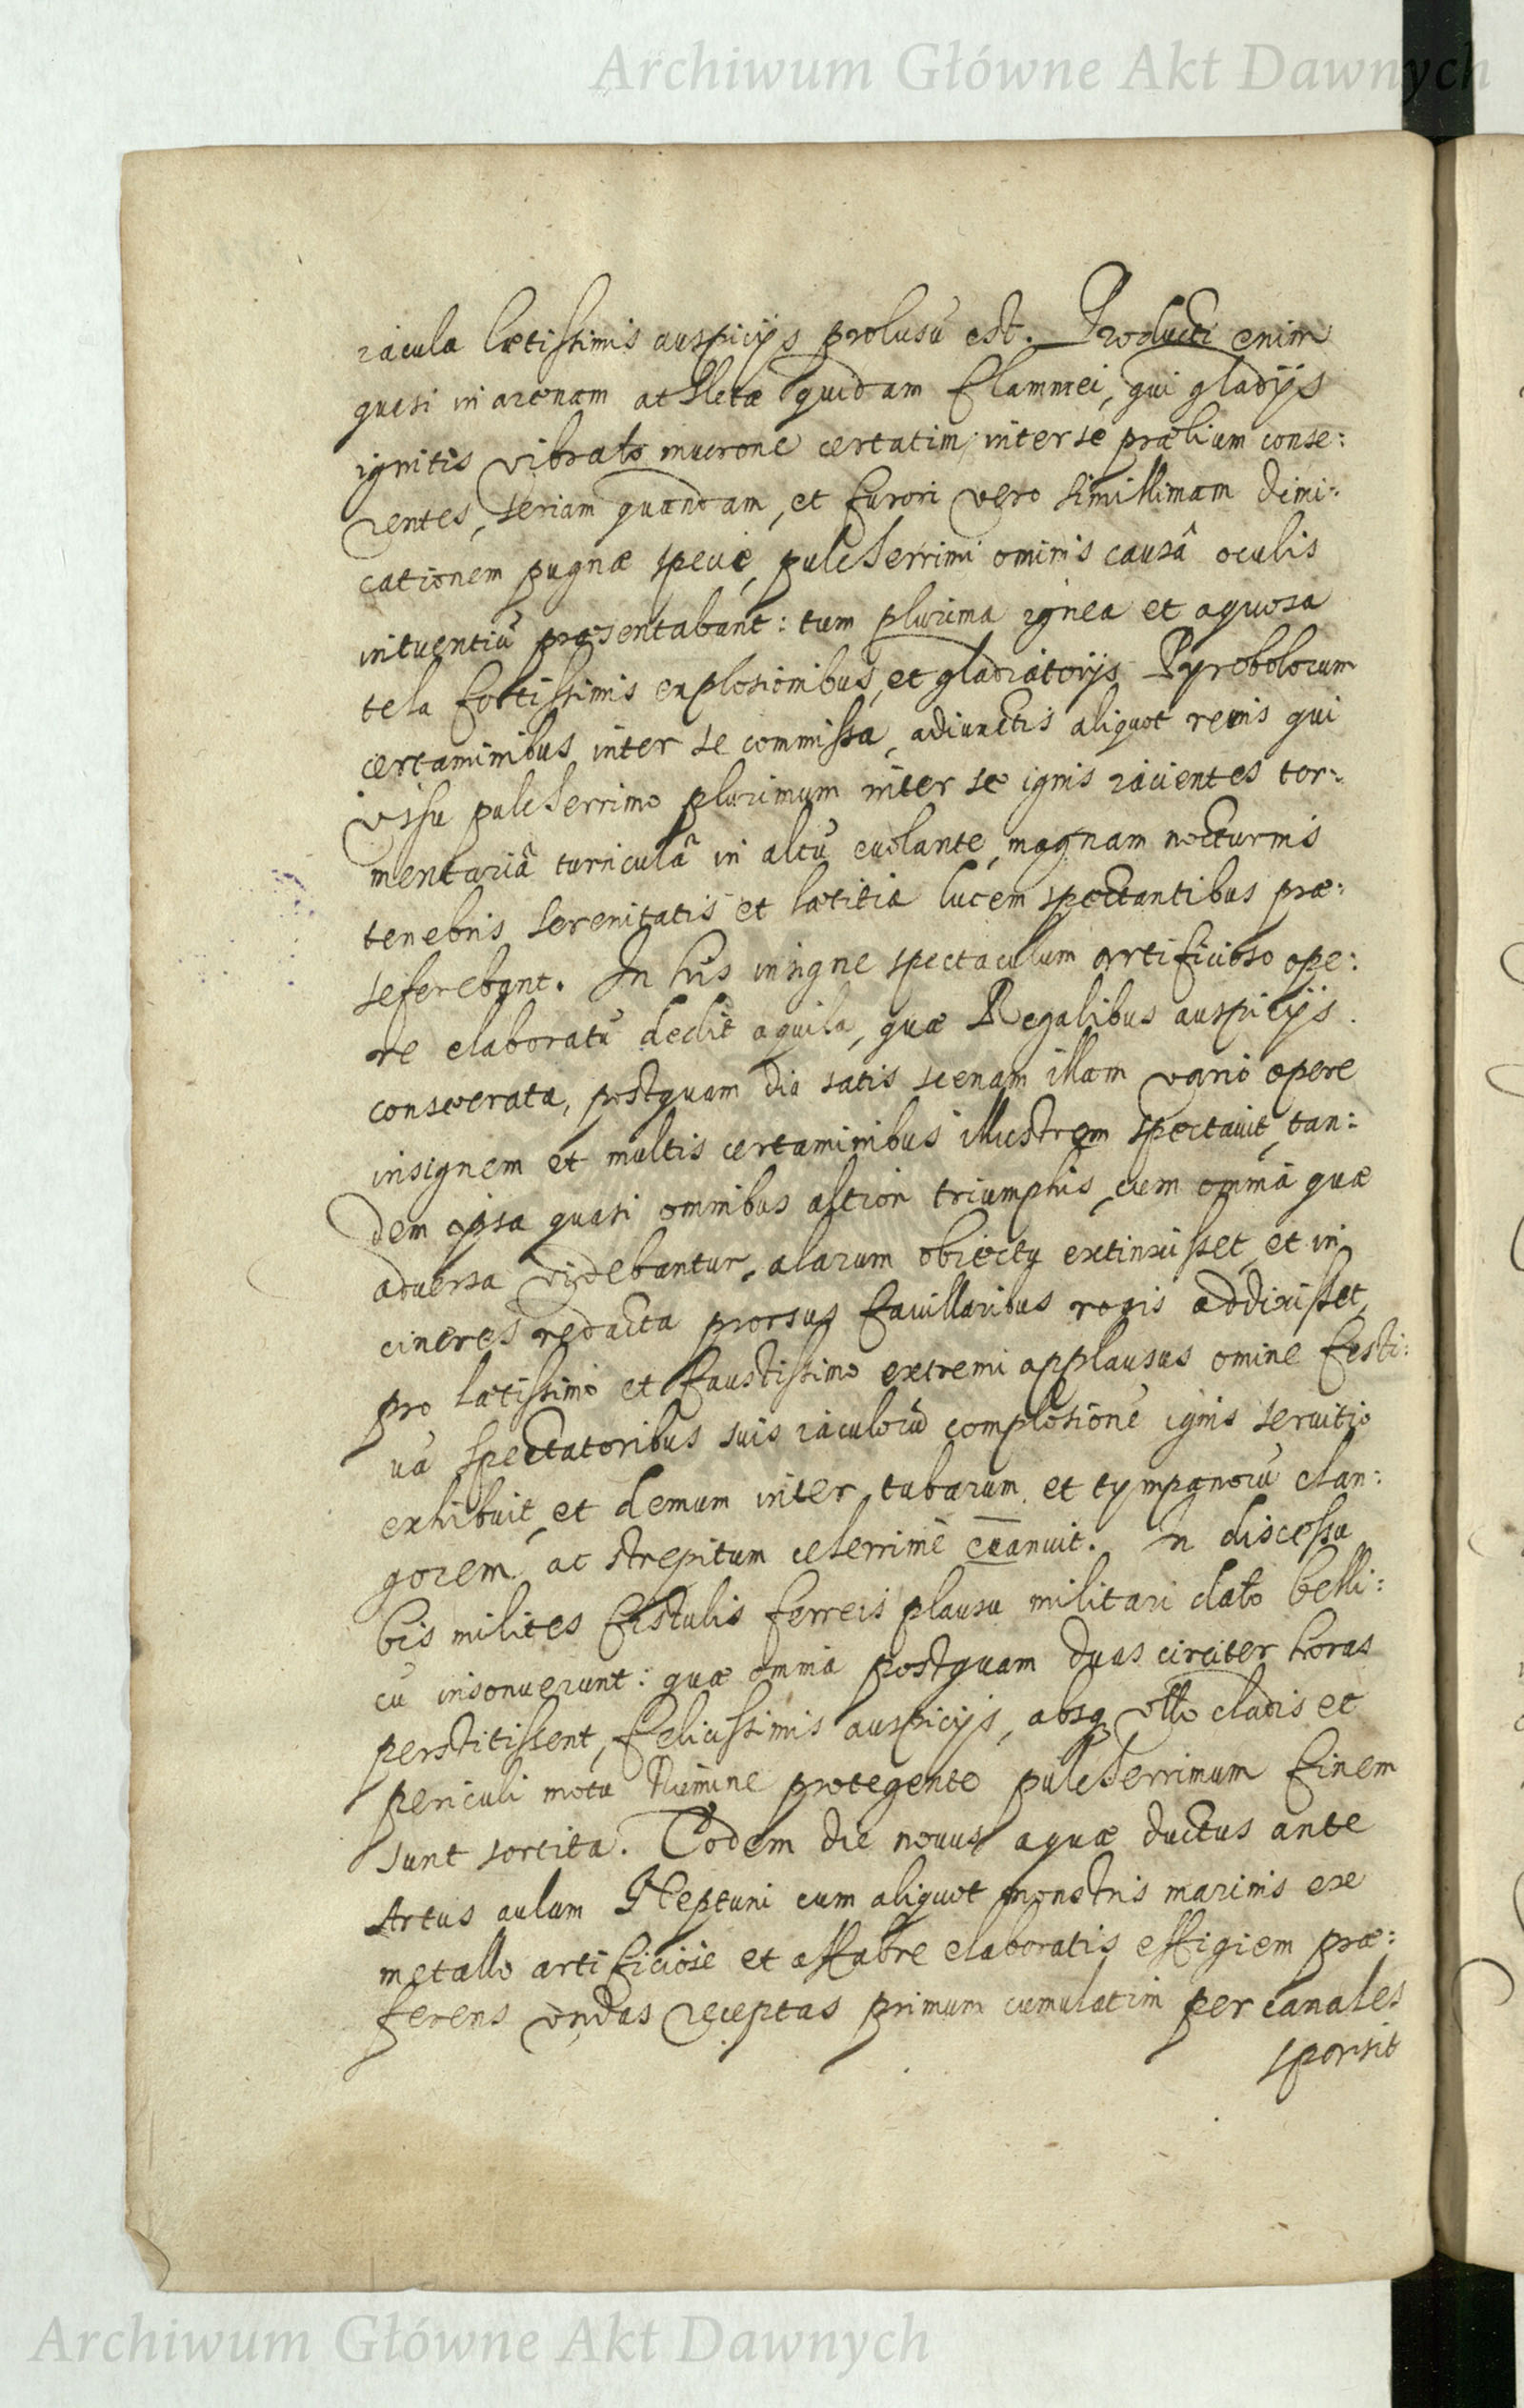 Archiwum Główne Akt Dawnych
iacula lætissimis auspicijs prolusū est. Producti enim
quasi in arenam athletæ quidam flammei, qui gladijs
ignitis vibrato mucrone certatim inter se prælium conse:
rentes, seriam quandam, et furori vero simillimam dimi:
cationem pugnæ specie, pulcherrimi ominis causâ oculis
intuentiū præsentabant: tum plurima ignea et aquosa
tela fortissimis explosionibus, et gladiatorijs Pyrobolorum
certaminibus inter se commissa, adiunctis aliquot remis qui
visu pulcherrimo plurimum inter se ignis iacientes tor:
mentariâ turriculâ in altū evolante, magnam nocturnis
tenebris serenitatis et lætitiæ lucem spectantibus præ:
seferebant. In his insigne spectaculum artificioso ope:
re elaboratū dedit aquila, quæ Regalibus auspicijs
consecrata, postquam diu satis scenam illam vario opere
insignem et multis certaminibus illustrem spectauit, tan:
dem ipsa quasi omnibus altior triumphis, cum omnia quæ
aduersa videbantur, alarum obiectu extinxisset, et in
cineres redacta prorsus fauillaribus rogis addixisset,
pro lætissimo et faustissimo extremi applausus omine festi:
uā spectatoribus suis iaculorū complosionē ignis seruitio
exhibuit, et demum inter tubarum et tympanorū clan:
gorem ac strepitum celerrimè euanuit. In discessu
bis milites fistulis ferreis plausu militari dato belli:
cū insonuerunt: quæ omnia postquam duas circiter horas
perstitissent, felicissimis auspicijs, absq3 ullo cladis et
periculi motu Numine protegente pulcherrimum finem
sunt sortita. Eodem die nouus aquæ ductus ante
Artus aulam Neptuni cum aliquot monstris marinis ex
metallo artificiose et affabre elaboratis effigiem præ:
ferens undas receptas primum cumulatim per canales
sparsit
Archiwum Główne Akt Dawnych